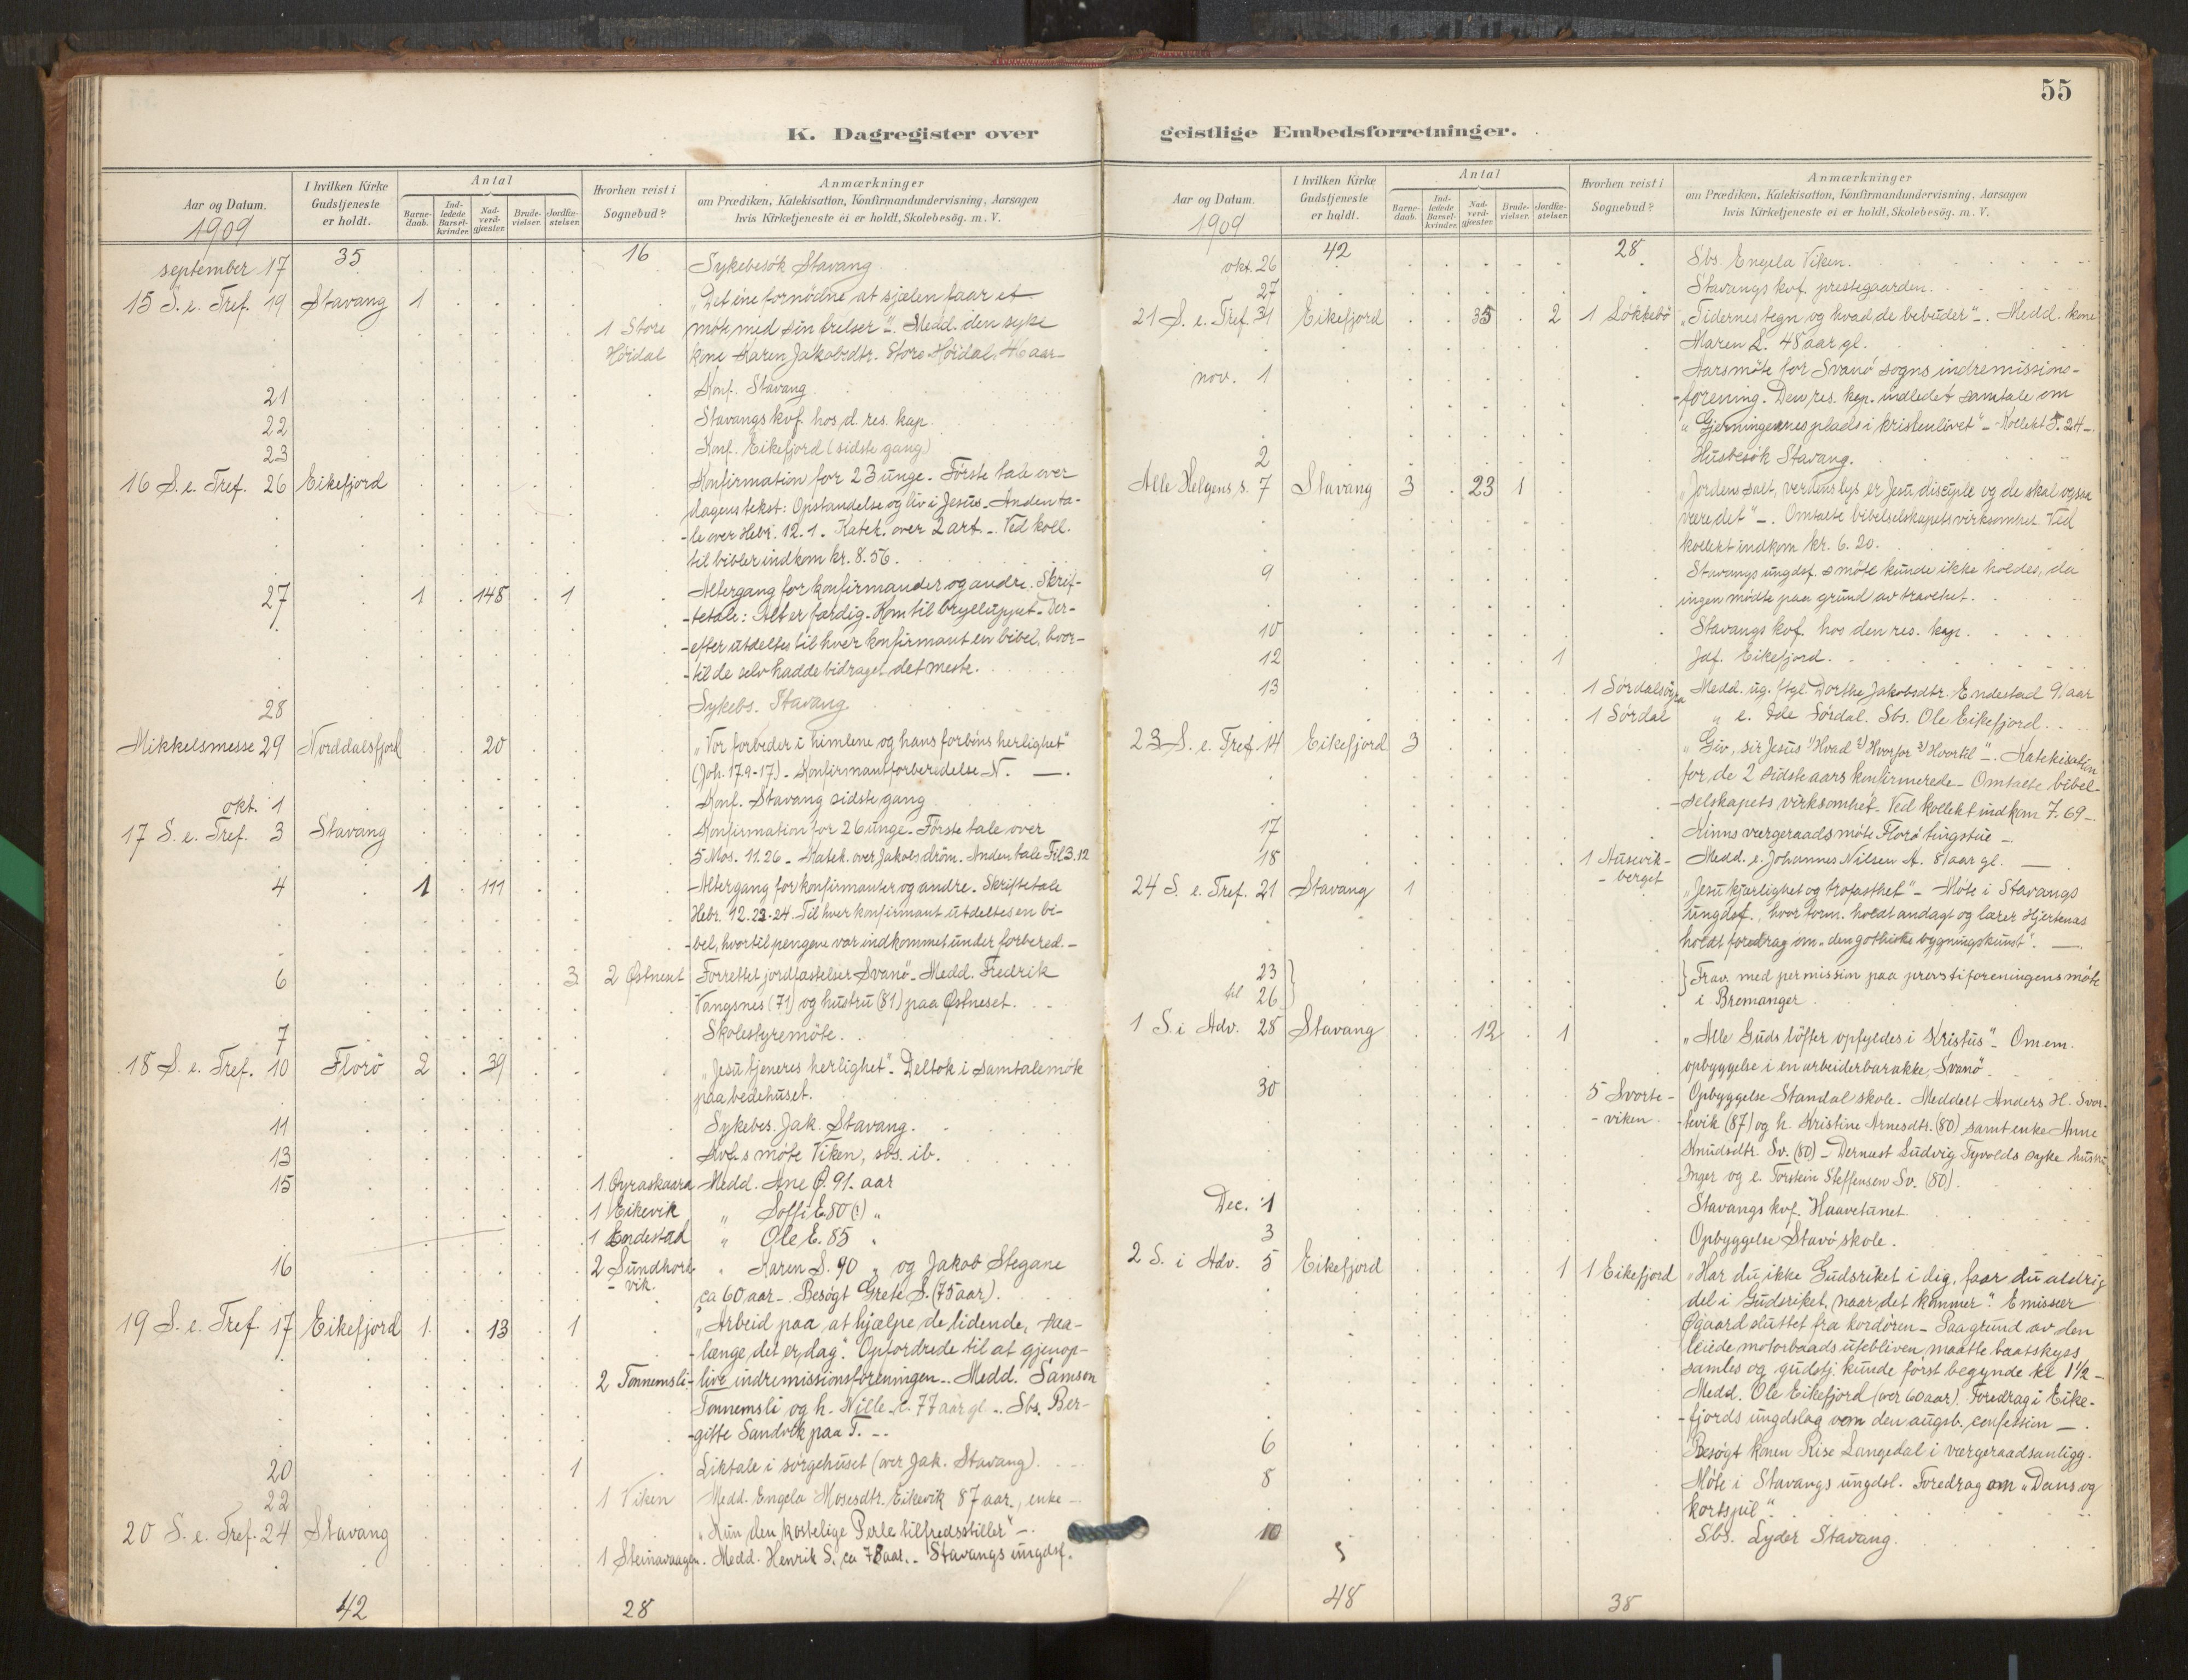 55
K. Dagregister over
geistlige Embedsforretninger.
Aar og Datum. 1909
I hvilken Kirke Gudstjeneste er holdt.
Antal
Barnedaab.
Indledede Barselkvinder.
Nadverdgjæster.
Brudevielser.
Jordfæstelser.
Hvorhen reist i Sognebud?
Anmærkninger
om Prædiken, Katekisation, Konfirmandundervisning, Aarsagen
hvis Kirketjeneste ei er holdt, Skolebesög. m. V.
35 16
september 17 Sykebesök Stavang
15 S. e. Tref. 19 Stavang 1 „Det ene fornödne, at sjælen faar et
1 Store möte med sin frelser“. Medd. den syke
Höidal kone Karen Jakobsdtr. Store Höidal, 46 aar
21 Konf. Stavang
22 Stavangs kvf. hos d. res. kap.
23 Konf. Eikefjord (sidste gang)
16 S. e. Tref. 26 Eikefjord Konfirmation for 23 unge. Förste tale over
dagens tekst: Opstandelse og liv i Jesus. Anden ta-
-le over Hebr. 12.1. Katek. over 2 art. Ved koll.
til bibler indkom kr. 8.56.
27 1 148 1 Altergang for konfirmander og andre. Skrif-
-tetale: Alt er færdig. Kom til brylluppet. Der-
-efter utdeltes til hver konfirmant en bibel, hvor-
-til de selv hadde bidraget det meste.
28 Sykebs. Stavang
Mikkelsmesse 29 Norddalsfjord 20 „Vor forbeder i himlene og hans forböns herlighet“
(Joh. 17.9-17). Konfirmantforberedelse N. —.
okt. 1 Konf. Stavang sidste gang
17 S. e. Tref. 3 Stavang Konfirmation for 26 unge. Förste tale over
5 Mos. 11.26 – Katek. over Jakobs dröm. Anden tale Fil 3.12
4 1 111 Altergang for konfirmanter og andre. Skriftetale
Hebr. 12.22-24. Til hver konfirmant utdeltes en bi-
-bel, hvortil pengene var indkommet under forbered.–
6 3 2 Østneset Forrettet jordfæstelser Svanö. Medd. Fredrik
Vangsnes (71) og hustru (81) paa Østneset.
7 Skolestyremöte.
18 S. e. Tref. 10 Florö 2 39 „Jesu tjeneres herlighet“. Deltok i samtalemöte
paa bedehuset.
11 Sykebes. Jak. Stavang.
13 Kvf.s möte Viken, sbs. ib.
15 1 Øyraskaara Medd. Ane Ø. 91. aar
1 Eikevik „ Soffi E. 80 (?) „
1 Endestad „ Ole E. 85 „
16 2 Sundhors- „ Karen S. 90 „ og Jakob Stegane
- vik. ca 60 aar. Besøgt Grete S. (75 aar).
19 S. e. Tref. 17 Eikefjord 1 13 1 „Arbeid paa at hjælpe de lidende, saa-
-længe det er dag“. Opfordrede til at gjenop-
2 Tonnemsli -live indremissionsforeningen. Medd. Samson
Tonnemsli og h. Nille c. 77 aar gl. Sbs. Ber-
-gitte Sandvik paa T.
20 1 Liktale i sørgehuset (over Jak. Stavang).
22 1 Viken Medd. Engela Mosesdtr. Eikevik 87 aar, enke
20 S. e. Tref. 24 Stavang „Kun den kostelige Perle tilfredsstiller“
1 Steinavaagen. Medd. Henrik S. ca 78 aar. Stavangs ungdsf.
42 28
Aar og Datum. 1909
I hvilken Kirke Gudstjeneste er holdt.
Antal
Barnedaab.
Indledede Barselkvinder.
Nadverdgjæster.
Brudevielser.
Jordfæstelser.
Hvorhen reist i Sognebud?
Anmærkninger
om Prædiken, Katekisation, Konfirmandundervisning, Aarsagen
hvis Kirketjeneste ei er holdt, Skolebesög. m. V.
42 28
okt. 26 Sbs. Engela Viken.
27 Stavangs kvf. prestegaarden.
21 S. e. Tref. 31 Eikefjord 35 2 1 Løkkebø „Tidernes tegn og hvad de bebuder“. Medd. kone
Maren L. 48 aar gl.
nov. 1 Aarsmöte for Svanö sogns indremissions-
-forening. Den res. kap. indledet samtale om
„Gjerningernes plads i kristenlivet“ – Kollekt 5.24
2 Husbesök Stavang.
Alle Helgens s. 7 Stavang 3 23 1 „Jordens salt, verdens lys er Jesu disciple og de skal ogsaa
være det“. Omtalte bibelselskapets virksomhet. Ved
kollekt indkom kr. 6.20.
9 Stavangs ungdsf.s möte kunde ikke holdes, da
ingen mödte paa grund av travelhet.
10 Stavangs kvf. hos den res. kap.
12 1 Jdf. Eikefjord.
13 1 Sørdalsöyra Medd. ug. ftgl. Dorthe Jakobsdtr. Endestad 91 aar
1 Sørdal „ e. Ide Sørdal. Sbs. Ole Eikefjord.
23 S. e. Tref. 14 Eikefjord 3 „Giv, sir Jesus 1) Hvad 2) Hvorfor 3) Hvortil“. Katekisation
for de 2 sidste aars konfirmerede. Omtalte bibel-
-selskapets virksomhet. Ved kollekt indkom 7.69
17 Kinns værgeraads möte Florö tingstue
18 1 Ausevik- Medd. e. Johannes Nilsen A. 81 aar gl.
- berget
24 S. e. Tref. 21 Stavang 1 „Jesu kjærlighet og trofasthet“ – Möte i Stavangs
ungdsf., hvor form. holdt andagt og lærer Hjertenæs
holdt foredrag om „den gothiske bygningskunst“.
23 } Frav. med permission paa provstiforeningens möte
til 26 i Bremanger
1 S. i Adv. 28 Stavang 12 1 „Alle Guds löfter opfyldes i Kristus“. Om em.
opbyggelse i en arbeiderbarakke, Svanö.
30 5 Svorte- Opbyggelse Standal skole. Meddelt Anders H. Svor-
- viken -tevik (87) og h. Kristine Arnesdtr. (80) samt enke Anne
Knudsdtr. Sv. (80) – Dernæst Ludvig Tyvolds syke hustru
Inger og e. Torstein Steffensen Sv. (80).
Dec. 1 Stavangs kvf. Haavetunet
3 Opbyggelse Stavö skole.
2 S. i Adv. 5 Eikefjord 1 1 Eikefjord „Har du ikke Gudsriket i dig, faar du aldrig
del i Gudsriket, naar det kommer“. Emissær
Øgaard sluttet fra kordören. Paa grund av den
leiede motorbaads utebliven maatte baatskyss
samles og gudstj. kunde först begynde kl 1½
Medd. Ole Eikefjord (over 60 aar). Foredrag i Eike-
-fjords ungdslag om den augsb. confession
6 Besøgt konen Rise Langedal i værgeraadsanligg.
8 Möte i Stavangs ungdsl. Foredrag om „Dans og
kortspil“.
10 Sbs. Lyder Stavang.
48 38